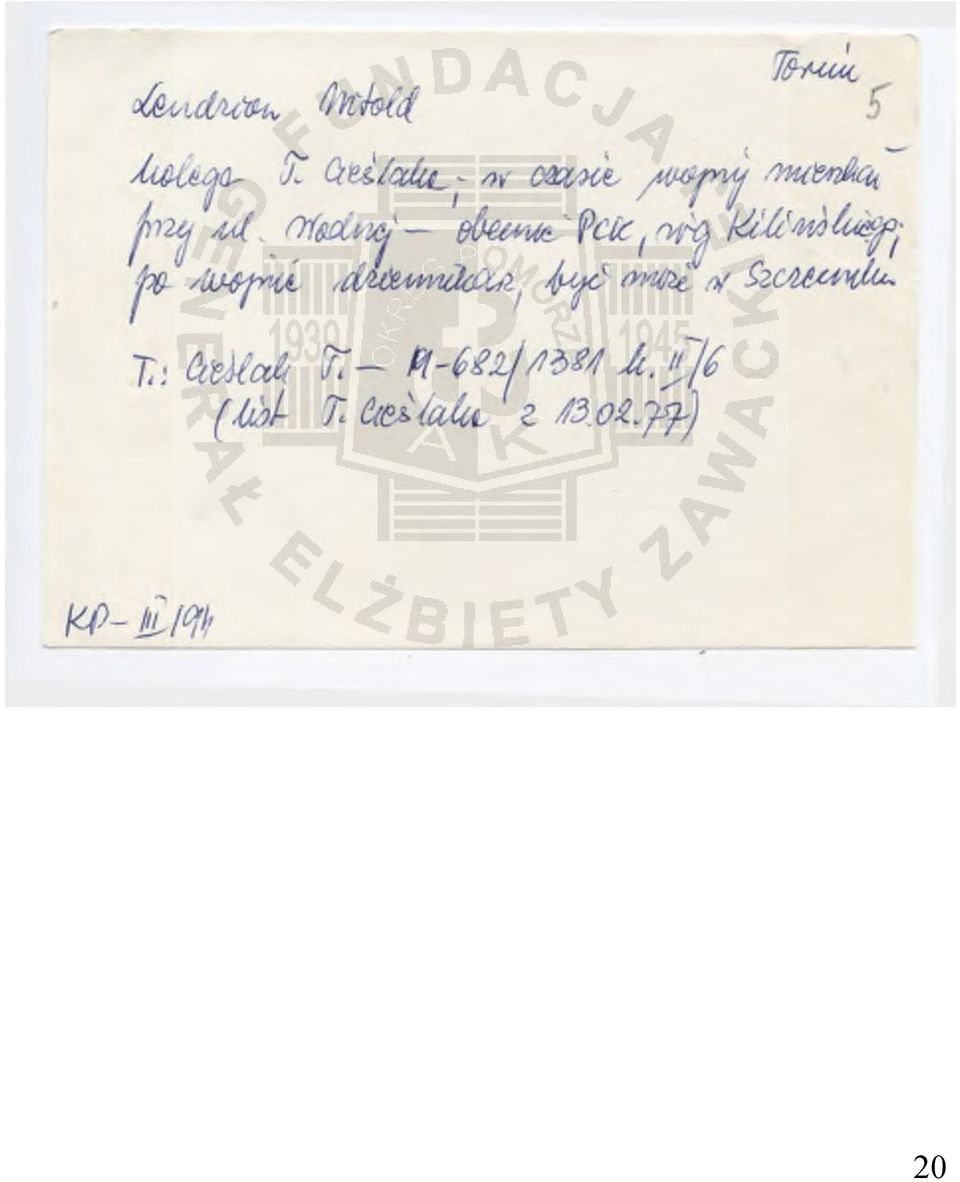 Toruń
5
Lendzion Witold
kolega T. Cieślaka; w czasie wojny mieszkał
przy ul. Wodnej - obecnie PCK, róg Kilińskiego;
po wojnie dziennikarz, być może w Szczecinku
T.: Cieślak T. - M-682/1381 k. II/6
(list T. Cieślaka z 13.02.77)
KP- III/94
FUNDACJA
GENERAŁ ELŻBIETY ZAWACKIEJ
OKRĘG POMORZE
1939
1945
AK
20